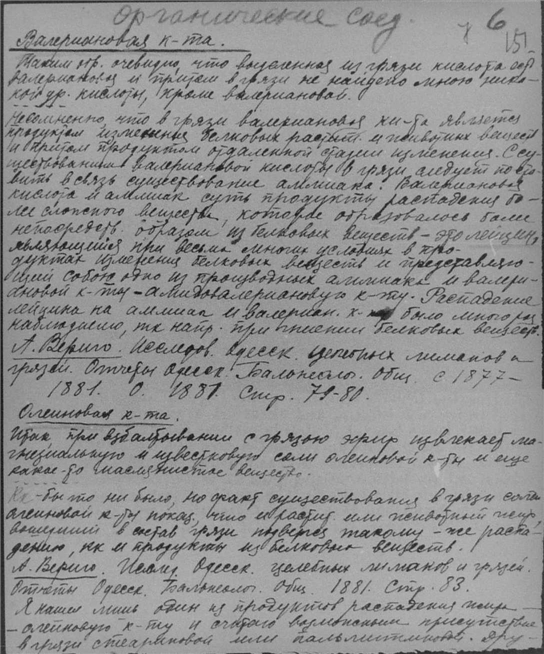 Органические соед.
6
151
Валериановая к-та.
Таким обр. очевидно, что выделенная из грязи кислота есть
валериановая и притом в грязи не найдено мною ника-
кой др. кислоты, кроме валериановой.
Несомненно, что в грязи валериановая ки-та является
продуктом изменения белковых растит. и животных веществ
и притом продуктом отдаленной стадии изменения. С су-
ществованием валериановой кислоты в грязи следует поста-
вить в связь существование аммиака. Валериановая
кислота и аммиак суть продукты распадения бо-
лее сложного вещества, которое образовалось более
непосредств. образом из белковых веществ - это лейцин,
являющийся при весьма многих условиях в про-
дуктах изменения белковых веществ и представляю-
щий собою одно из производных аммиака и валери-
ановой к-ты - амидовалериановую к-ту. Распадение
лейцина на аммиак и валериан. к-ту было много раз
наблюдаемо, так напр. при гниении белковых веществ.
А. Вериго. Исследов. Одесск. целебных лиманов и
грязей. Отчеты Одесск. Бальнеолог. Общ. с 1877-
1881. О. 1881. Стр. 79-80.
Олеиновая к-та.
Итак при взбалтывании с грязью эфир извлекает ма-
гнезиальную и известковую соли олеиновой к-ты и еще
какое-то маслянистое вещество.
Как-бы то ни было, но факт существования в грязи солей
олеиновой к-ты показ. что и растит. или животный жир,
вошедший в состав грязи подвергся такому-же распа-
дению, как и продукты из белковых веществ.
А. Вериго. Исслед. Одесск. целебных лиманов и грязей.
Отчеты Одесск. Бальнеолог. Общ. 1881. Стр. 83.
Я нашел лишь один из продуктов распадения жира
- олеиновую к-ту и считаю возможным присутствие
в грязи стеариновой или пальмитиновой. Дру-